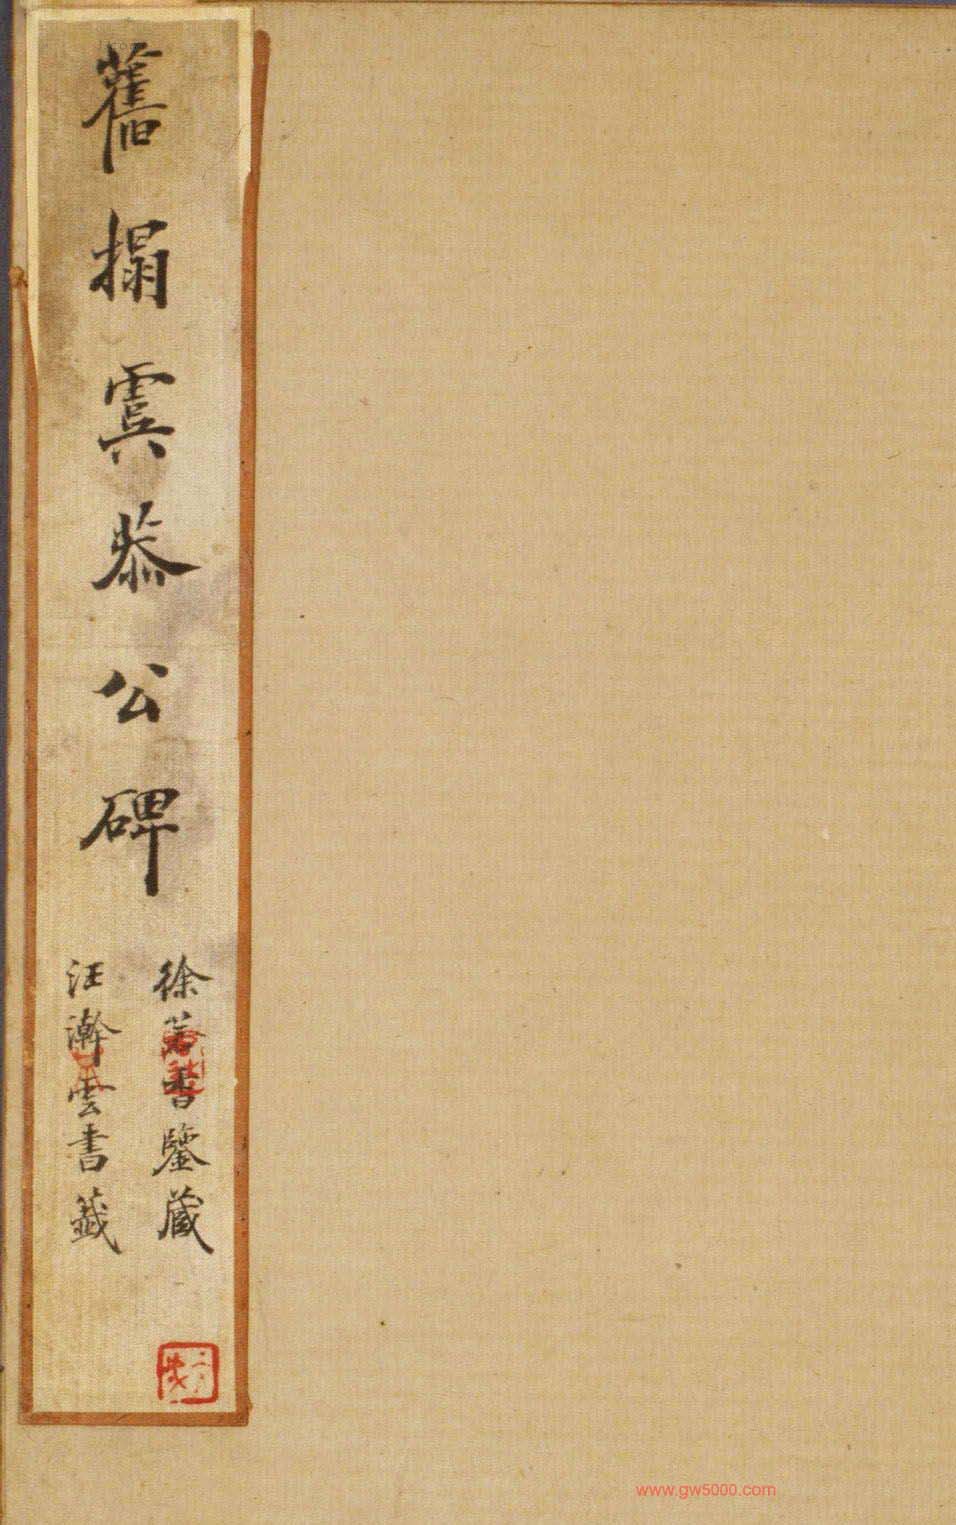 舊搨虞恭公碑
徐若晋鑒藏
汪瀚雲書籤
www.gw5000.com